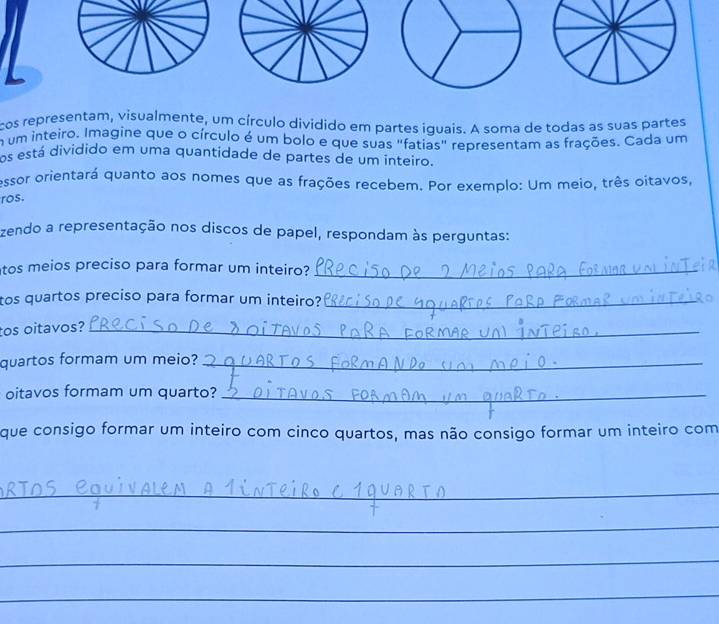 cos representam, visualmente, um círculo dividido em partes iguais. A soma de todas as suas partes
um inteiro. Imagine que o círculo é um bolo e que suas "fatias" representam as frações. Cada um
os está dividido em uma quantidade de partes de um inteiro.
essor orientará quanto aos nomes que as frações recebem. Por exemplo: Um meio, três oitavos,
ros.
zendo a representação nos discos de papel, respondam às perguntas:
tos meios preciso para formar um inteiro? PReciso De 2 Meios PARA FoRMAR UM inTeiR
tos quartos preciso para formar um inteiro? PReciso De 4 QUARTOS PARA FORMAR um inTeiRo
tos oitavos? PReciso De 8 OiTAVOS PARA FORMAR UM iNTeiRO.
quartos formam um meio? 2 QUARTOS FORMANDO um meio.
oitavos formam um quarto? 2 OiTAVOS FORMAM UM QUARTO.
que consigo formar um inteiro com cinco quartos, mas não consigo formar um inteiro com
ARTOS equiVALeM A 1 iNTeiRo e 1 QUARTO